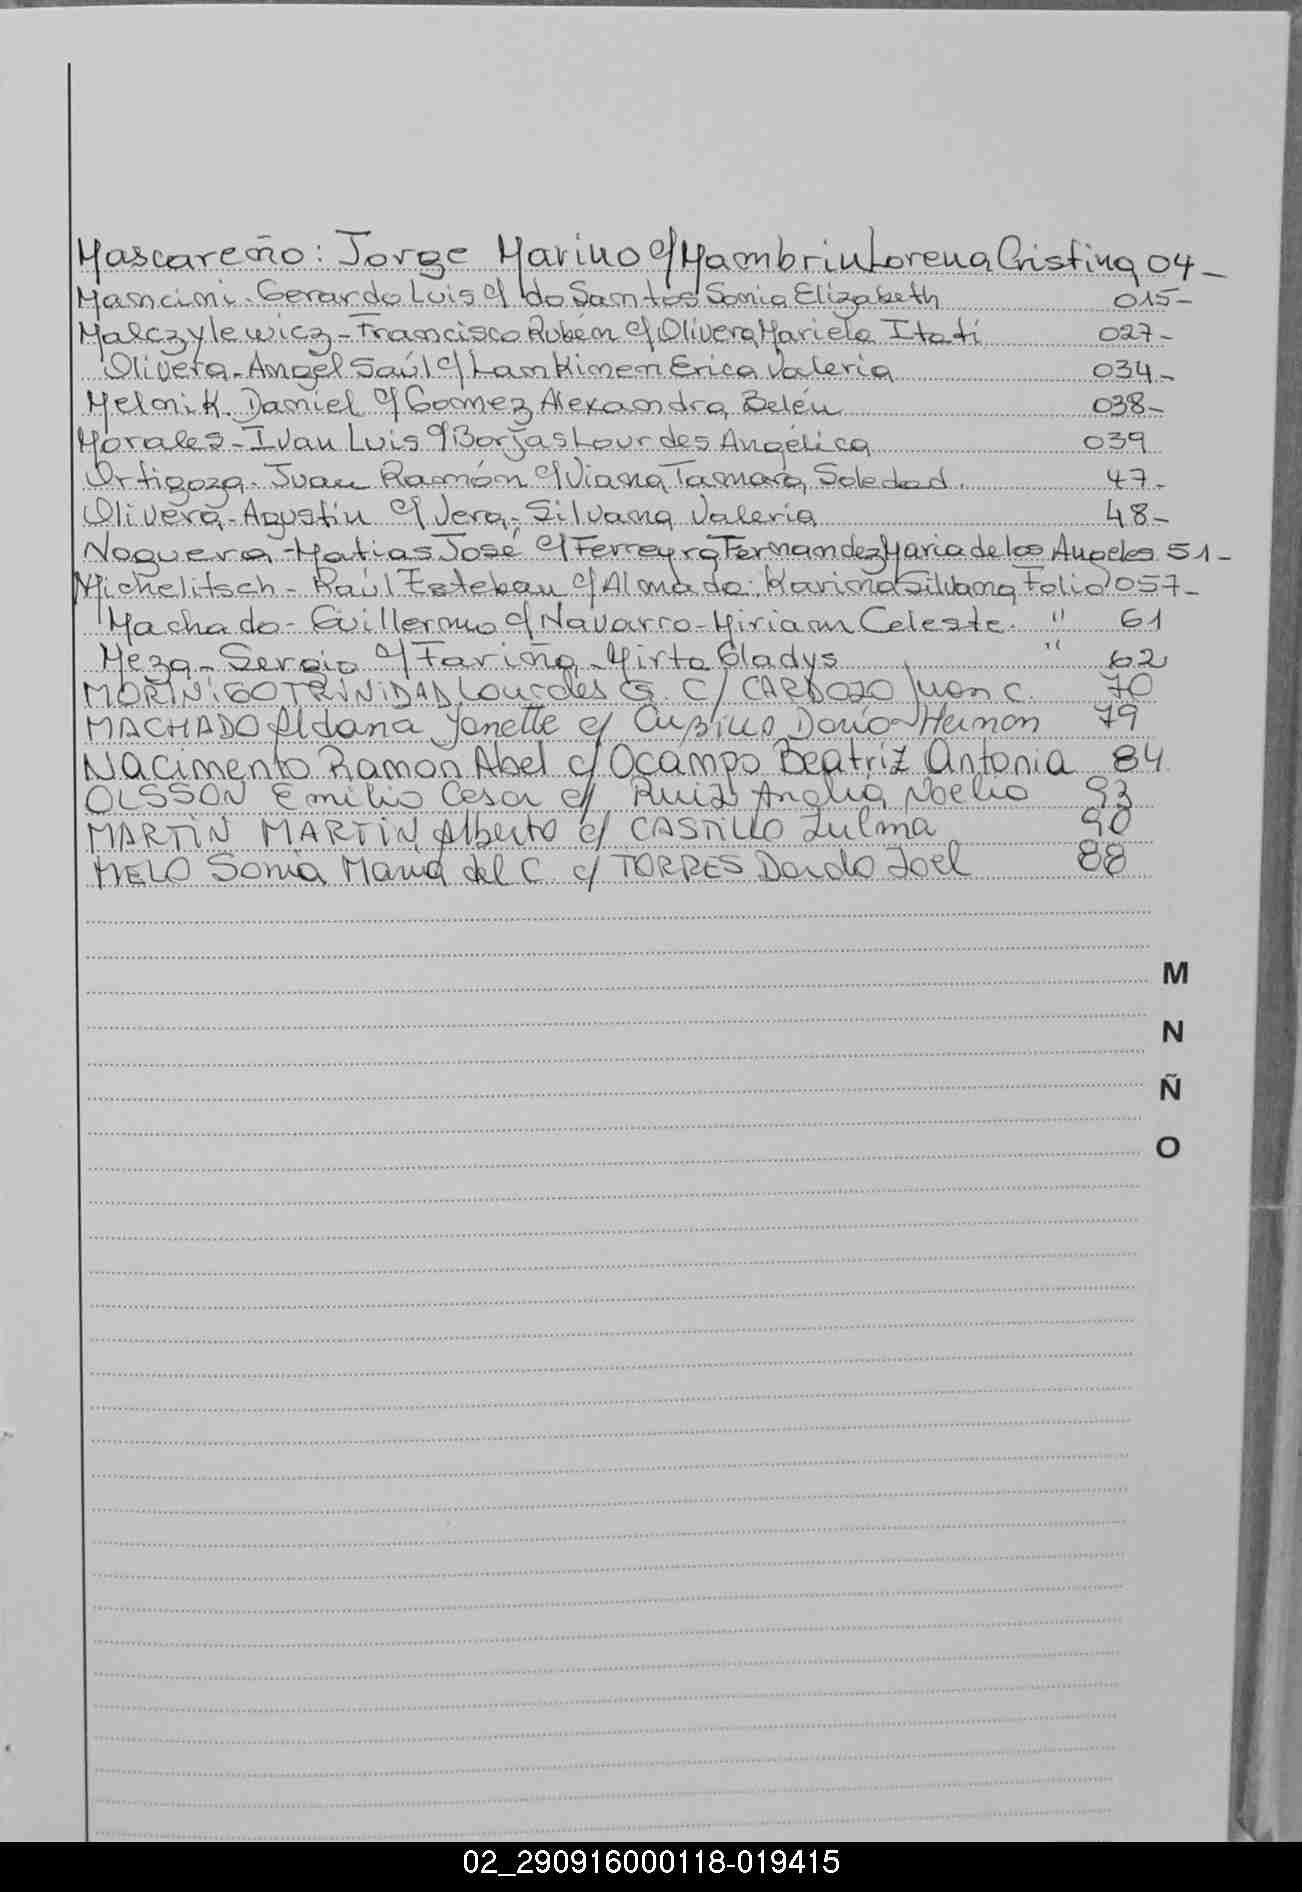 Mascareño: Jorge Marino c/ Mambrin Lorena Cristina 04-
Mancini. Gerardo Luis c/ do Santos Sonia Elizabeth 015-
Malczylewicz - Francisco Rubén c/ Olivera Mariela Itatí 027-
Olivera - Angel Saúl c/ Lamkimen Erica Valeria 034-
Melnik. Daniel c/ Gomez Alexandra Belén 038-
Morales - Ivan Luis c/ Borjas Lourdes Angélica 039
Ortigoza - Juan Ramón c/ Viana Tamara Soledad. 47-
Olivera - Agustin c/ Vera - Silvana Valeria 48-
Noguera - Matias José c/ Ferreyra Fernandez Maria de los Angeles 51-
Michelitsch - Raúl Esteban c/ Almada: Karina Silvana Folio 057-
Machado - Guillermo c/ Navarro - Miriam Celeste. " 61
Meza - Sergio c/ Fariña - Mirta Gladys " 62
MORINIGO TRINIDAD Lourdes G. C/ CARDOZO Juan C. 70
MACHADO Aldana Yanette c/ Dario Hernan 79
Nacimento Ramon Abel c/ Ocampo Beatriz Antonia 84
OLSSON Emilio Cesar c/ Ruiz Analia Noelia 93
MARTIN MARTIN Alberto c/ CASTILLO Zulma 90
MELO Sonia Maria del C. c/ TORRES Dardo Joel 88
M
N
Ñ
O
02_290916000118-019415